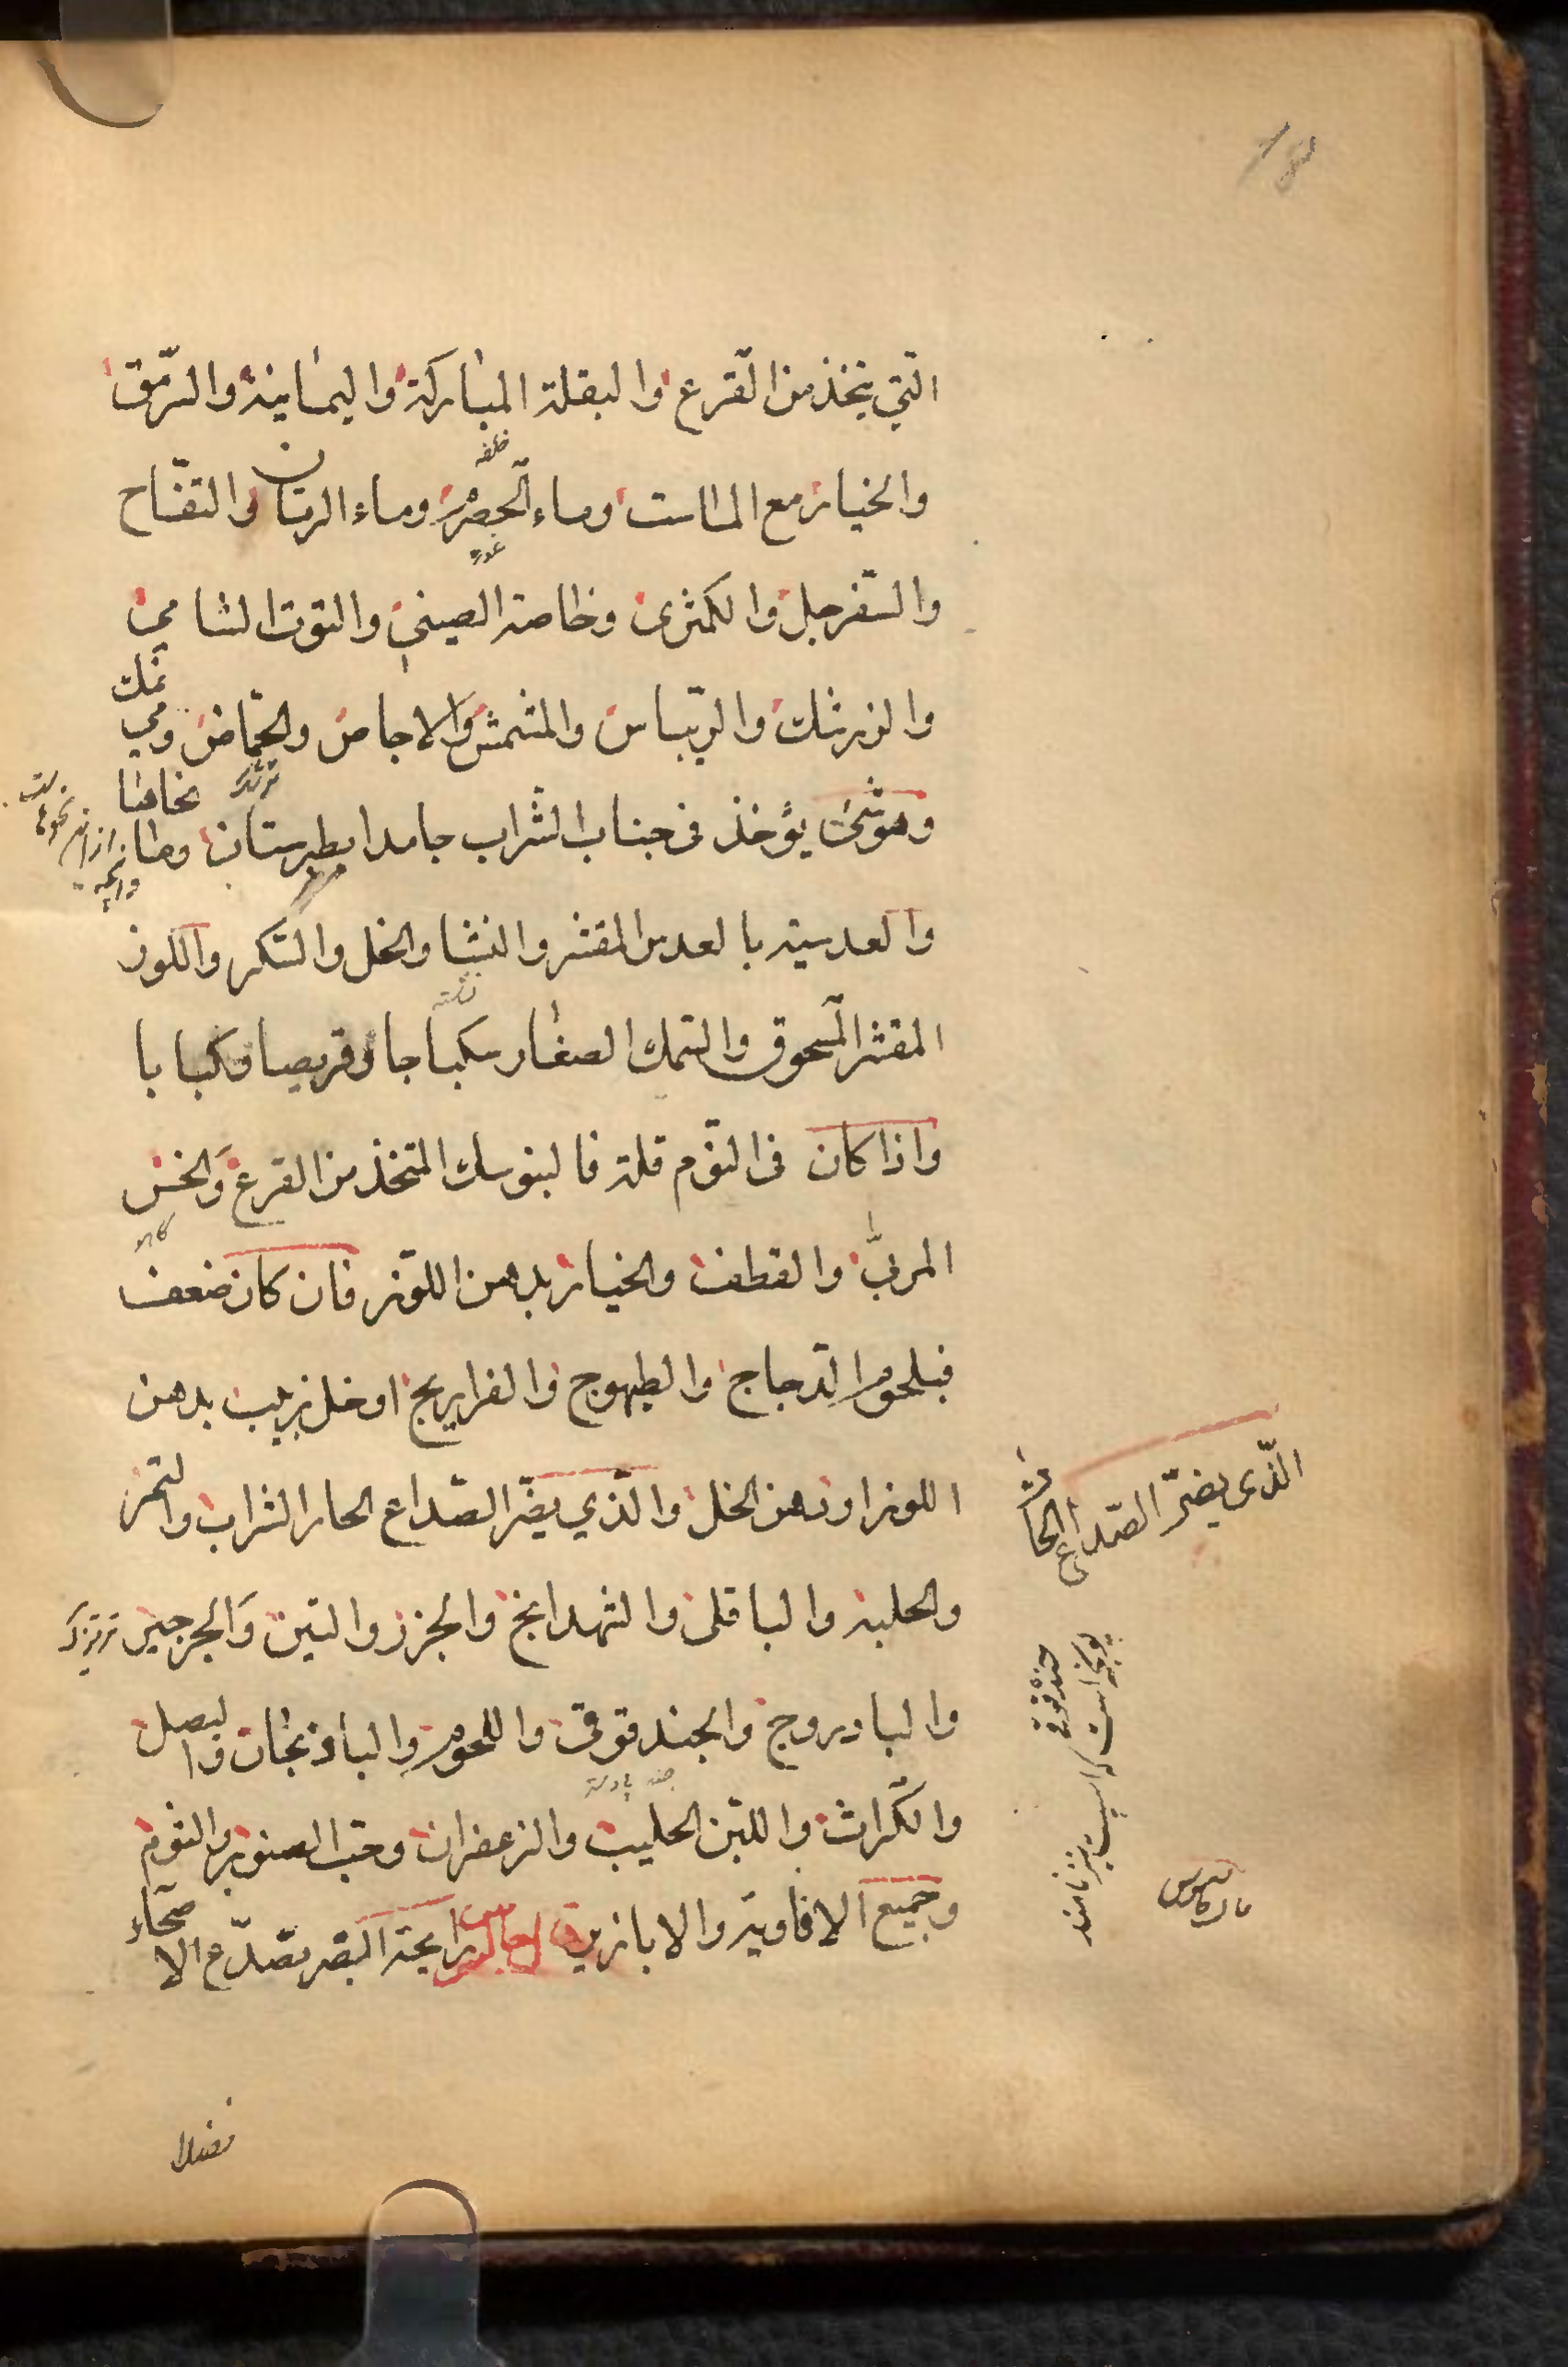 التي يتخذ من القرع والبقلة المباركة واليمانية والسرمق
والخيار مع الماست وماء الحصرم وماء الرمان والتفاح
والسفرجل والكمثرى وخاصة الصيني والتوت الشامي
والزرشك والريباس والمشمش والاجاص والحماض ومي
وهو شيء يؤخذ في جناب الشراب جامدا بطبرستان
والعدسية بالعدس المقشر والنشا والخل والسكر واللوز
المقشر المسحوق والسمك الصغار سكباجا وقريصا وكبابا
واذا كان في النوم قلة فالبنوسك المتخذ من القرع والخس
المربى والقطف والخيار بدهن اللوز فان كان ضعف
فبلحوم الدجاج والطيهوج والفراريج او خل زبيب بدهن
اللوز او دهن الخل والذي يضر الصداع الحار الشراب والتمر
والحلبة والباقلى والشهدانج والجزر والتين والجرجير
والبادروج والحندقوقى واللحوم والباذنجان والبصل
والكراث واللبن الحليب والزعفران وحب الصنوبر والثوم
وجميع الافاويه والابازير رايحة البقر تصدع الاصحاء
الذي يضر الصداع الحار
حندقوقى
فضلا